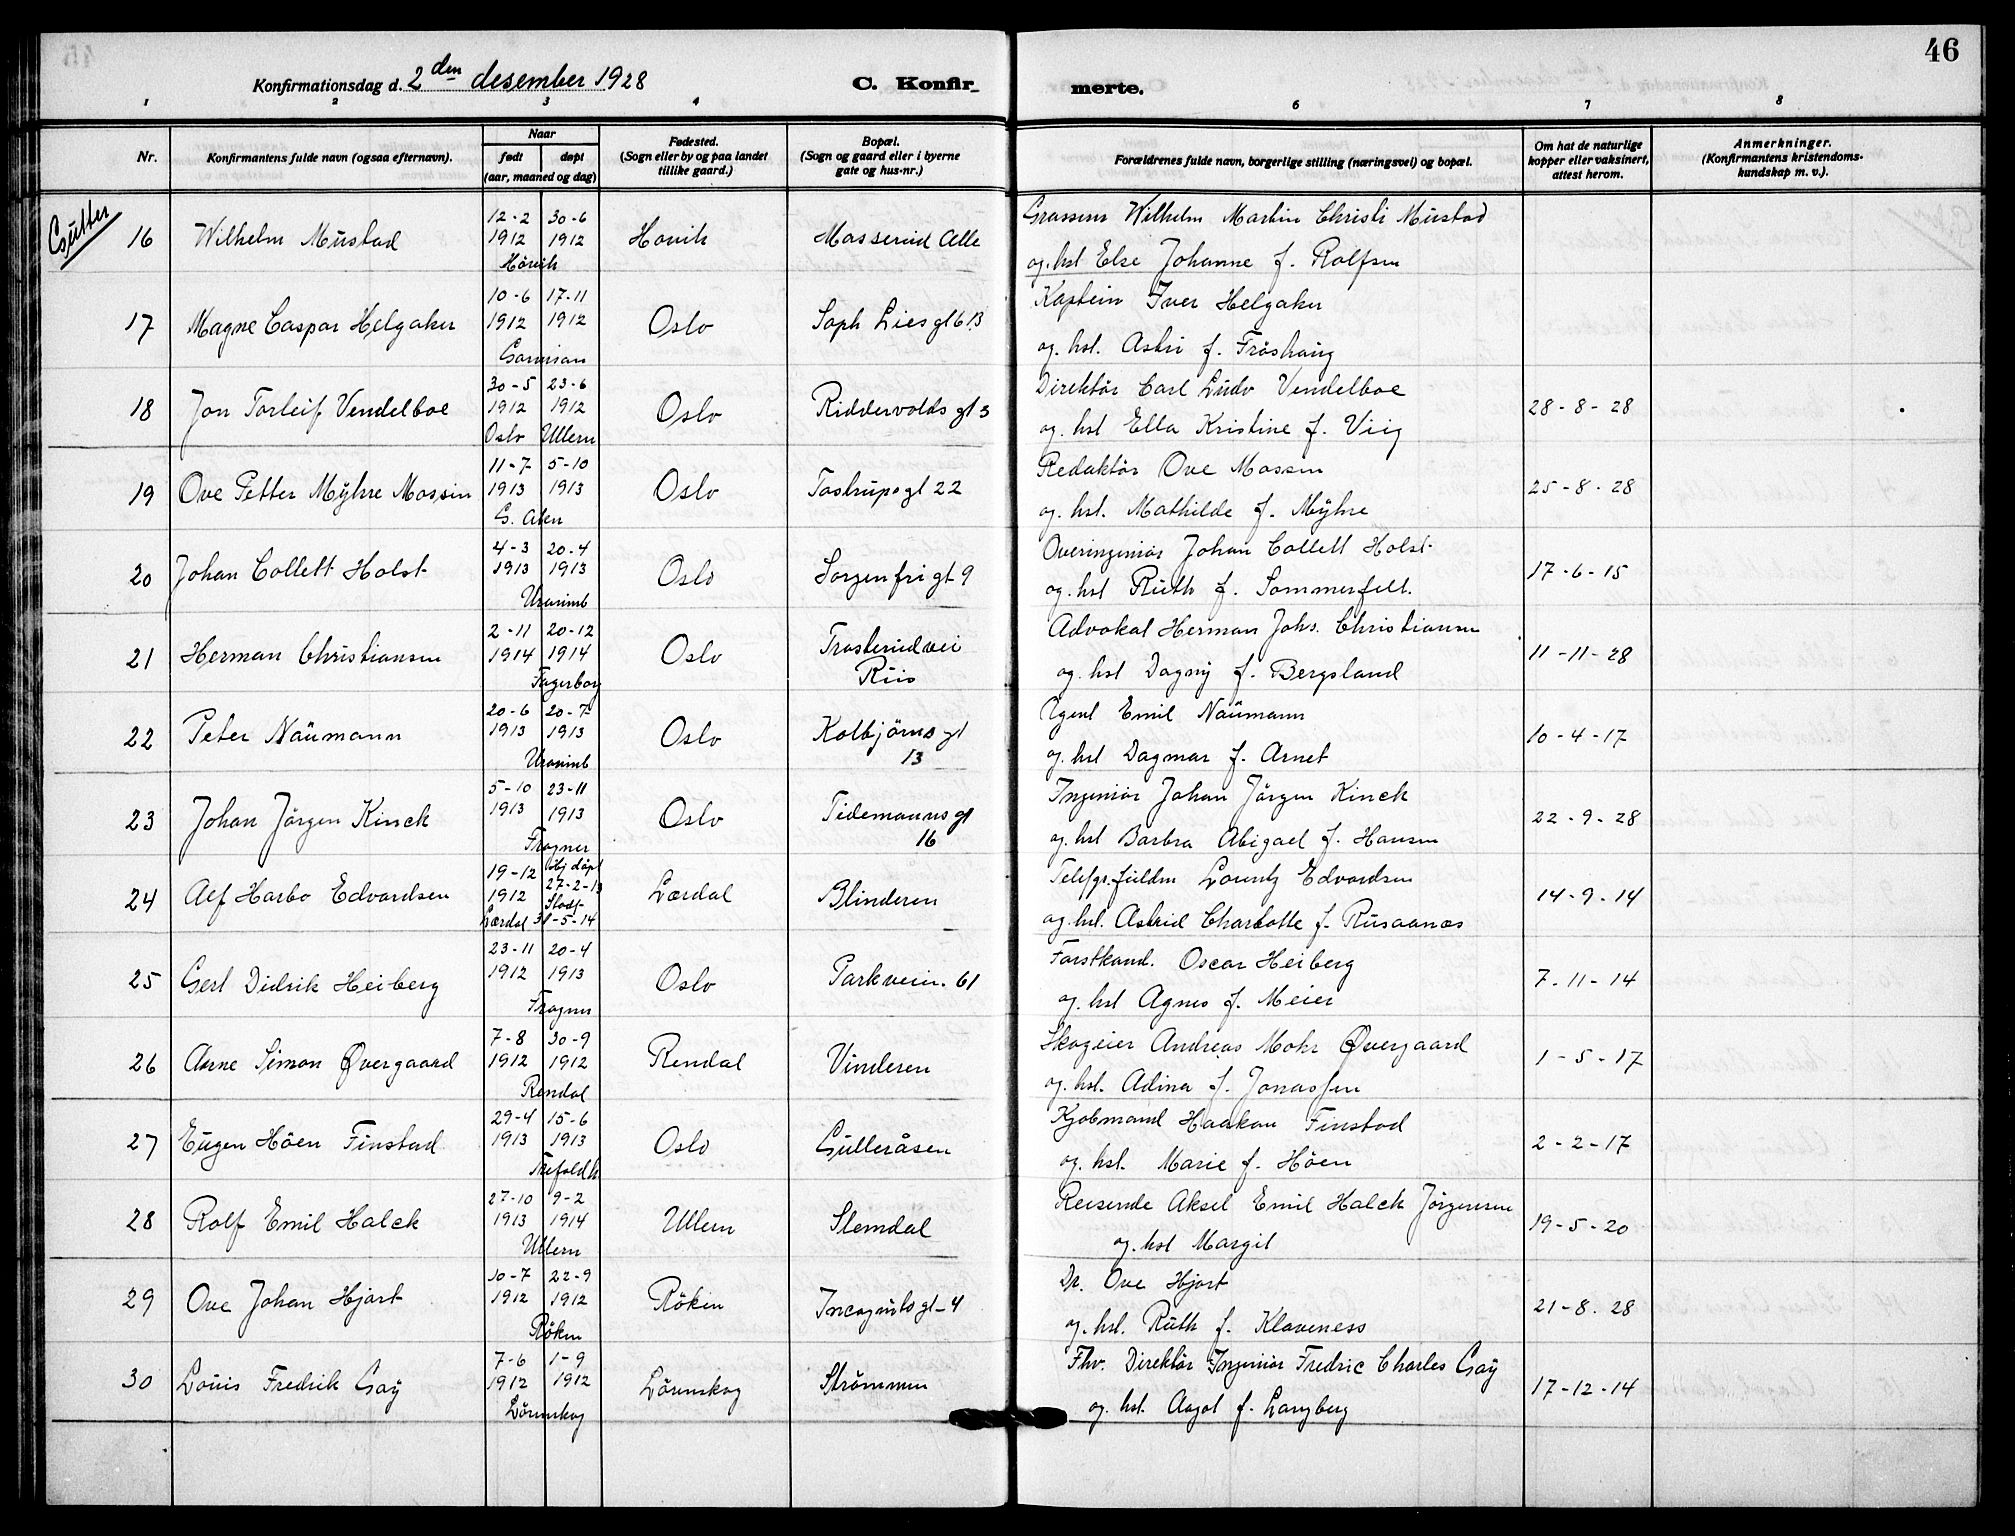 46
Konfirmationsdag d. 2den desember 1928
C. Konfir-
merte.
1 2 3 4 5 6 7 8
Nr.
Konfirmantens fulde navn (ogsaa efternavn).
Naar
født døpt
(aar, maaned og dag)
Fødested.
(Sogn eller by og paa landet
tillike gaard.)
Bopæl.
(Sogn og gaard eller i byerne
gate og hus-nr.)
Forældrenes fulde navn, borgerlige stilling (næringsvei) og bopæl.
Om hat de naturlige
kopper eller vaksinert,
attest herom.
Anmerkninger.
(Konfirmantens kristendoms-
kundskap m. v.).
Gutter
16 Wilhelm Mustad 12-2 1912 30-6 1912 Hövik Hövik Masserud Alle
Grosserer Wilhelm Martin Christi Mustad
og. hst Else Johanne f. Rolfsen
17 Magne Caspar Helgaker 10-6 1912 17-11 1912 Garnison Oslo Soph Lies gt 6 B
Kaptein Iver Helgaker
og. hst. Astri f. Fröshaug
18 Jon Torleif Vendelboe 30-5 1912 23-6 1912 Oslo Ullern Oslo Riddervolds gt 3
Direktör Carl Ludv Vendelboe
og. hst Ella Kristine f. Viig
28-8-28
19 Ove Petter Myhre Mossin 11-7 1913 5-10 1913 G. Aker Oslo Tostrups gt 22
Redaktör Ove Mossin
og. hst. Mathilde f. Myhre
25-8-28
20 Johan Collett Holst 4-3 1913 20-4 1913 Uranienb Oslo Sorgenfri gt 9
Overingeniör Johan Collett Holst
og. hst Ruth f. Sommerfelt.
17-6-15
21 Herman Christiansen 2-11 1914 20-12 1914 Fagerborg Oslo Trosterudvei
Riis
Advokat Herman Johs. Christiansen
og. hst Dagny f. Bergsland
11-11-28
22 Peter Naumann 20-6 1913 20-7 1913 Uranienb Oslo Kolbjörns gt
13
Agent Emil Naumann
og. hst Dagmar f. Arnet
10-4-17
23 Johan Jörgen Kinck 5-10 1913 23-11 1913 Frogner Oslo Tidemanns gt
16
Ingeniör Johan Jörgen Kinck
og. hst Barbra Abigael f. Hansen
22-9-28
24 Alf Harbo Edvardsen 19-12 1912 Hj döpt 27-2-13 Stadf. Lærdal 31-5-14 Lærdal Blinderen
Lorentz Edvardsen
og. hst. Astrid Charlotte f. Rusaanæs
14-9-14
25 Gert Didrik Heiberg 23-11 1912 20-4 1913 Frogner Oslo Parkveien. 61
Forstkand. Oscar Heiberg
og. hst Agnes f. Meier
7-11-14
26 Arne Simon Øvergaard 7-8 1912 30-9 1912 Rendal Rendal Vinderen
Skogeier Andreas Mohr Øvergaard
og. hst. Adina f. Jonassen
1-5-17
27 Eugen Höen Finstad 29-4 1913 15-6 1913 Trefoldh Oslo Gulleråsen
Kjøbmand Haakon Finstad
og. hst. Marie f. Höen
2-2-17
28 Rolf Emil Halck 27-10 1913 9-2 1914 Ullern Ullern Slemdal
Reisende Aksel Emil Halck Jörgensen
og. hst Margit
19-5-20
29 Ove Johan Hjort 10-7 1912 22-9 1912 Röken Röken Incognito gt-4
Dr. Ove Hjort
og. hst. Ruth f. Klaveness
21-8.28
30 Louis Fredrik Gay 7-6 1912 1-9 1912 Lörenskog Lörenskog Strömmen
Fhv. Direktör Ingeniör Fredric Charles Gay
og. hst. Aagot f. Langberg
17-12-14